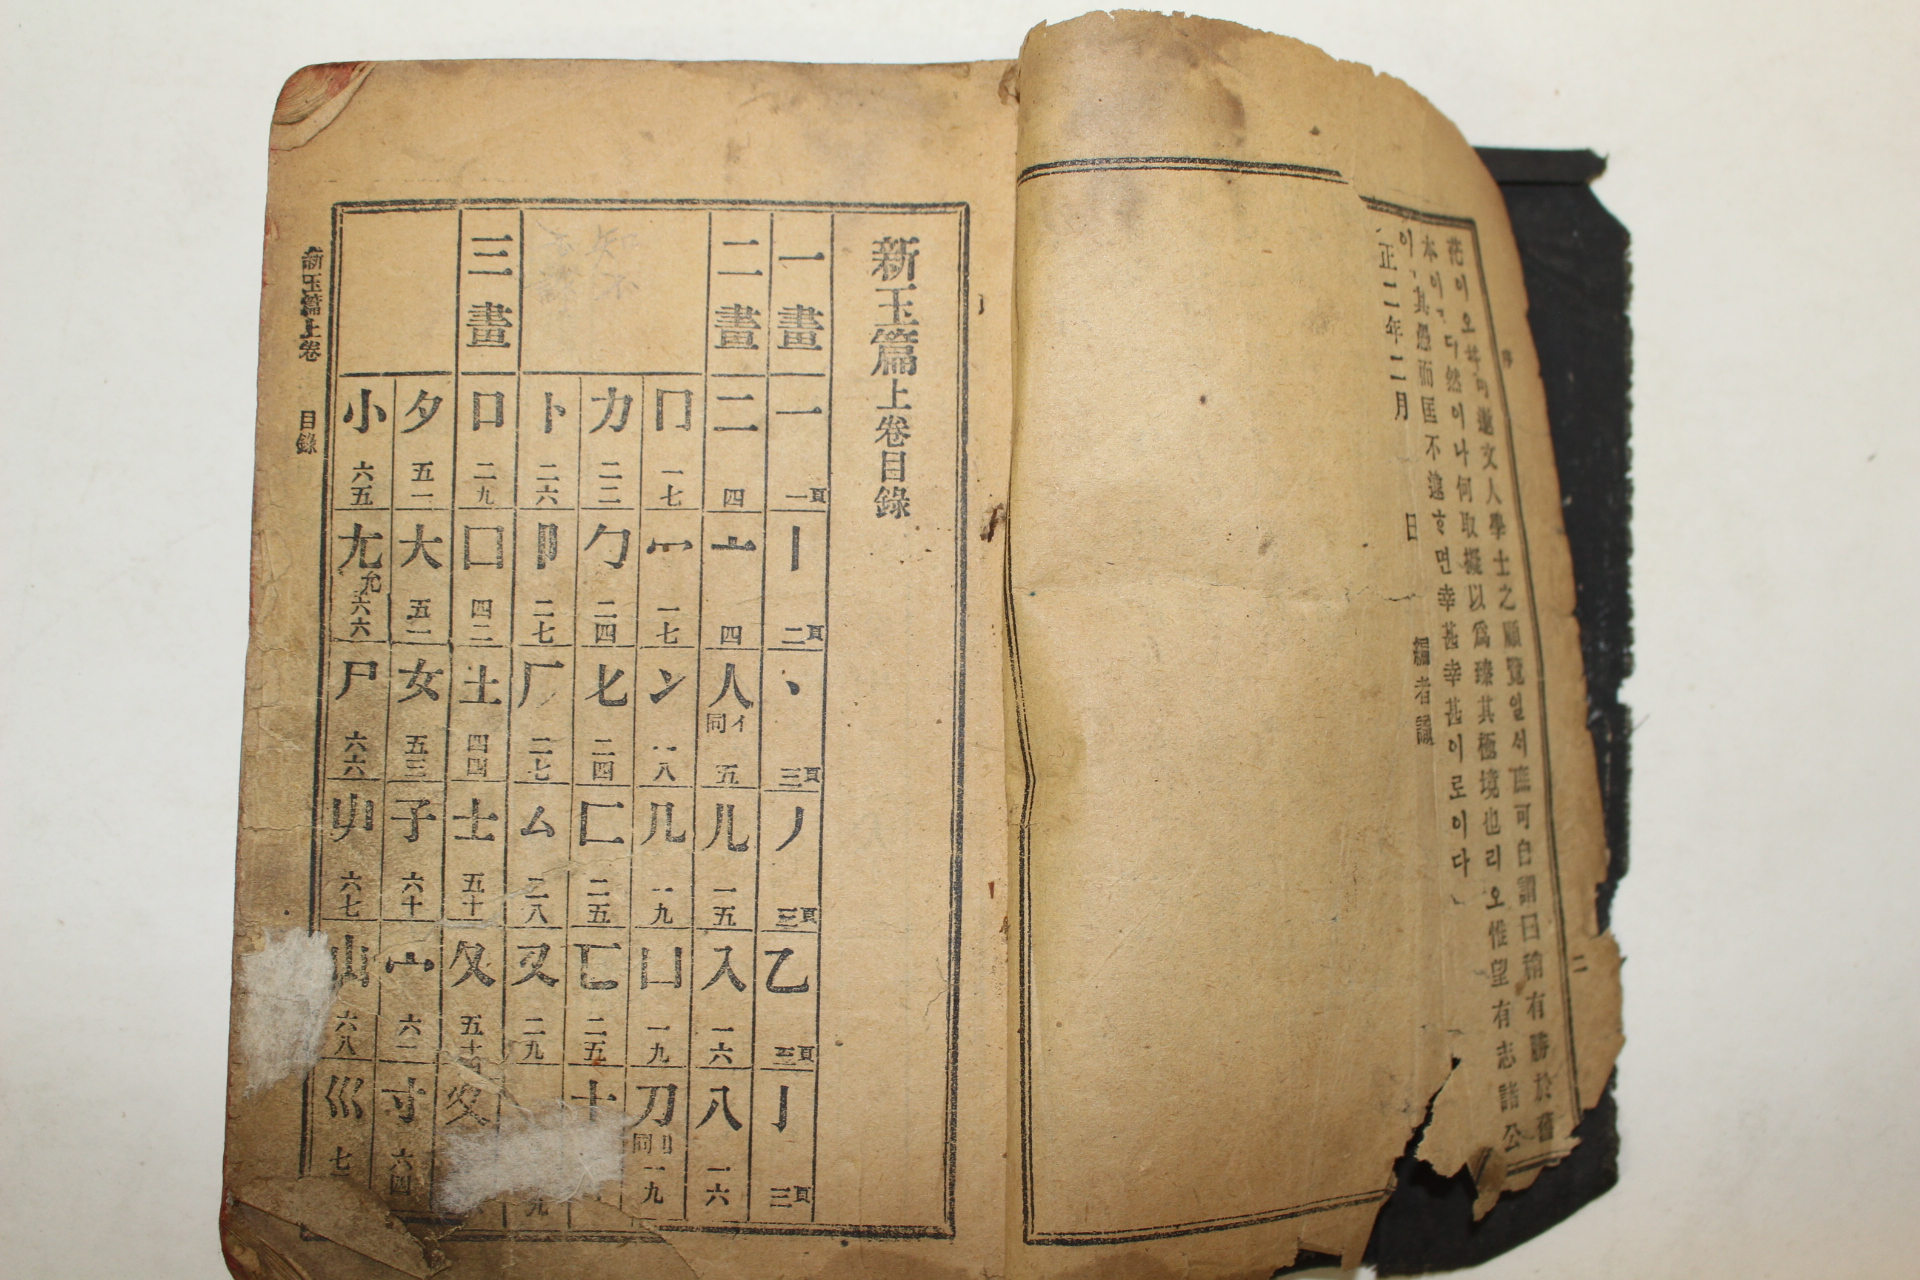 花이오
可繼文人學士之願覽일서
可自謂曰稍有勝於舊
本이
디然이나何取擬以爲臻其極境也리오惟望有志諸公
이
其愚而匡不逮ᄒ면幸甚幸甚이로이다
正二年二月 日 編者識
二
新玉篇上卷目錄
一畫
一 一頁
丨 二頁
丶 三頁
丿 三頁
乙 三頁
亅 三頁
二畫
二 四
亠 四
人 亻同 五
儿 一五
入 一六
八 一六
冂 一七
冖 一七
冫 一八
几 一九
凵 一九
刀 刂同 一九
力 二二
勹 二四
匕 二四
匚 二五
匸 二五
十
卜 二六
卩 二七
厂 二七
厶 二八
又 二九
三畫
口 二九
囗 四二
土 四四
士 五十
夂 五十
夊
夕 五一
大 五一
女 五三
子 六十
宀 六一
寸 六四
小 六五
尢 允 六六
尸 六六
屮 六七
山 六八
巛 七
新玉篇上卷 目錄